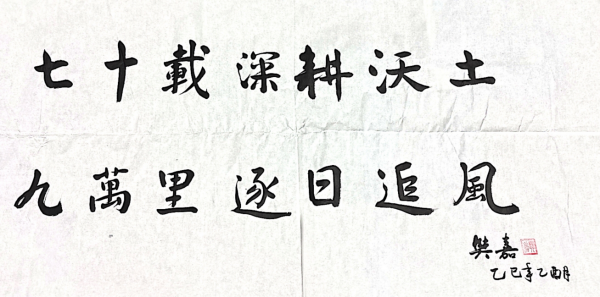 七十載深耕沃土
九萬里逐日追風
樊嘉
乙巳年乙酉月